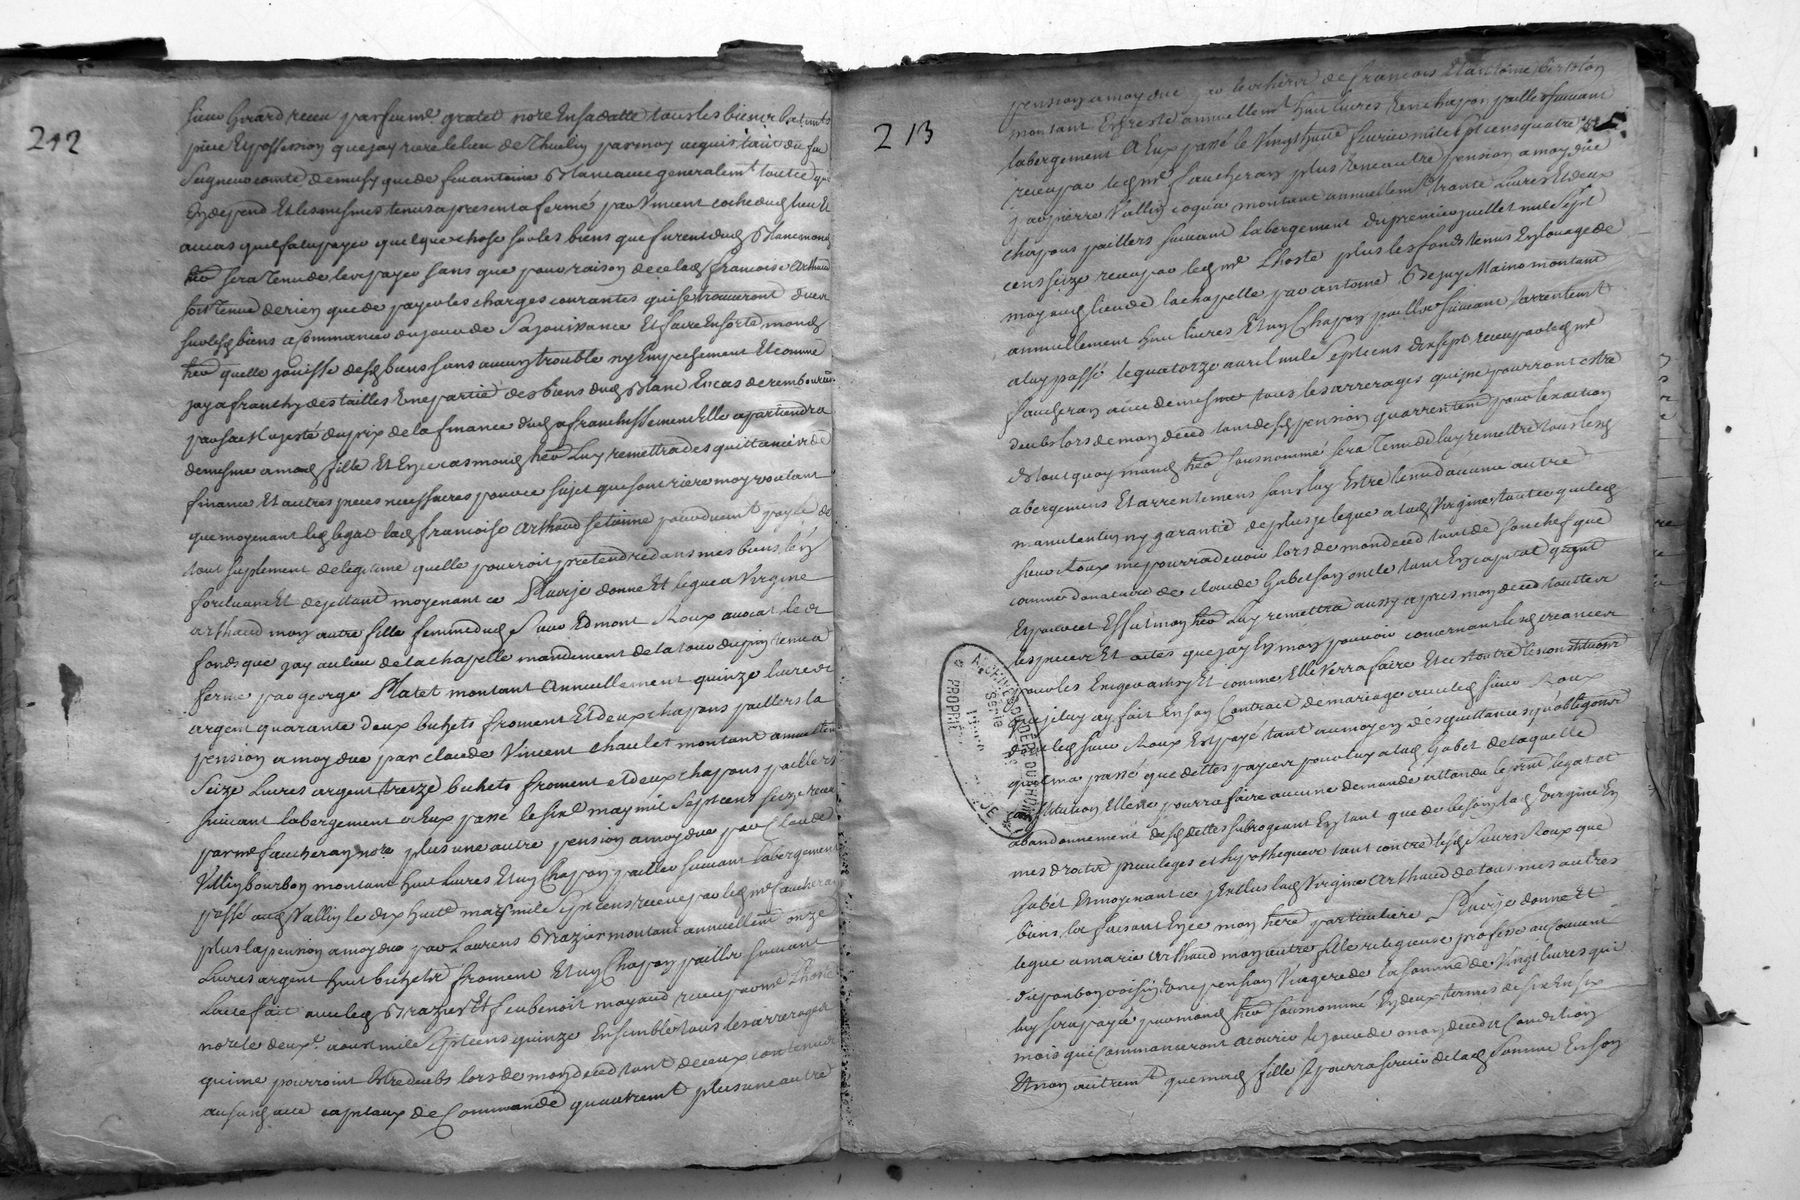 242
Sieur Girard receu par feu me gratet nore En sa datte tous les biens batimts
que Et possession que jay riere le lieu de Thuelin par moy acquis tant du feu
Seigneur comte demusy que de feu antoine Blanc avec generalemt tout ce qui
En depend Et les mesmes tenus a present a ferme par Vincent coche dud lieu Et
au cas quil falut payer quelque chose sur les biens que furent dud Blanc mond
her sera Tenu de le payer sans que pour raison de ce lad francoise Arthaud
soit Tenue de rien que de payer les charges courantes qui se trouveront dues
sur lesd biens a Commancer du jour de Sa jouissance Et faire En sorte mond
her quelle jouisse desd biens sans aucun trouble ny Empechement Et comme
jay afranchy des tailles Une partie des biens dud Blanc En cas de rembourcemt
par sa Majesté du prix de la finance dud afranchissement Elle apartiendra
de mesme a mad fille Et En ce cas mond her Luy remettra des quittances de
finance Et autres pieces necessaires pour ce sujet qui sont riere moy voulant
que moyenant led legat lad francoise Arthaud se tienne pour duemt payée de
tout suplement de legitime quelle pourroit pretendre dans mes biens len
forcluant Et dejettant moyenant ce Plus je donne Et legue a Virgine
arthaud mon autre fille femme dud Sieur Edmont Roux avocat le
fonds que jay au lieu de la chapelle mandement de la tour du pin tenu a
ferme par george Platet montant Annuellement quinze livres
argent quarante deux bichets froment Et deux chapons paillers la
pension a moy due par claude Vincent chaulet montant annuellemt
Seize Livres argent treize bichets froment et deux chapons paillers
suivant labergement a Eux passé le six may mil Sept cens seize receu
par me faucheran nore plus une autre pension a moy due par Claude
Vallin bourbon montant huit livres Et un Chapon pailler suivant labergement
passé aud Vallin le dix huit mars mil Sept cens receu par led me faucheran
plus la pension a moy due par Laurens Brazier montant annuellemt onze
Livres argent huit bichets froment Et un Chapon pailler suivant
Lacte fait avec led Brazier Et feu benoit mayaud receu par me Lhoste
nore le deux aoust mil Sept cens quinze Ensemble tous les arrerages
qui me pourront Estre deubs lors de mon deced tant de ceux contenus
aud acte capitaux de Commande quautremt plus une autre
213
pension a moy due par les hoirs de francois Et antoine bertolon
montant En reste annuellemt huit livres Et un chapon pailler suivant
labergement a Eux passé le Vingt huit fevrier mil Sept cens quatre
receu par led me faucheran plus Une autre pension a moy due
par pierre Vallin coqua montant annuellemt trante Livres Et deux
chapons paillers suivant labergement du premier juillet mil Sept
cens seize receu par led me Lhoste plus les fonds tenus En louage de
moy aud lieu de la chapelle par antoine montant
annuellement huit livres Et un Chapon pailler suivant larrentemt
a luy passé le quatorze avril mil Sept cens dix sept receu par led me
faucheran avec de mesme tous les arrerages qui me pourront estre
deubs lors de mon deced tant desd pension quarrentemt pour lexaction
de tout quoy mond her sousnommé sera Tenu de luy remettre tous lesd
abergemens Et arrentemens sans luy Estre tenu daucune autre
manutention ny garantie de plus je legue a lad Virgine tout ce que led
sieur Roux me pourra devoir lors de mon deced tant de son chef que
comme donataire de claude Gabet son oncle tant En capital quant
Et pour cet Effet mon her Luy remettra aussy apres mon deced toutes
les pieces Et actes que jay En mon pouvoir concernant lesd creances
pour les Exiger ainsy Et comme Elle verra faire Et ce outre les constitution
que je luy ay fait En son Contrat de mariage avec led sieur Roux
dont led sieur Roux Est payé tant au moyen des quittances et obligations
quil ma passé que dettes payées pour luy a lad Gabet de laquelle
constitution Elle ne pourra faire aucune demande attandu le prnt legat et
abandonnement desd dettes subrogeant En tant que de besoin lad Virgine En
mes droits privileges et hypotheques tant contre lesd sieurs Roux que
Gabet En moyenant ce jExclus lad Virgine Arthaud de tous mes autres
biens la faisant En ce mon here particuliere Plus je donne Et
legue a marie arthaud mon autre fille religieuse professe au couvent
du pont bonvoisin Une pension Viagere de la somme de Vingt livres qui
luy sera payée par mond her sousnommé En deux termes de six En six
mois qui Commanceront a courir le jour de mon deced a Condition
Et non autremt que mad fille se pourra servir de lad Somme En son
ARCHIVES DEP. DU RHONE
Série
PROPRIÉTÉ